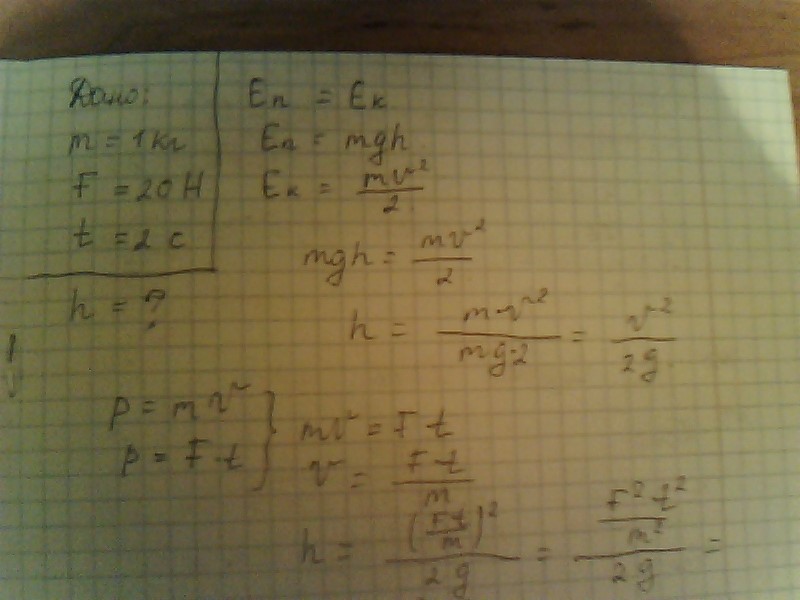 Дано:
m = 1 кг
F = 20 Н
t = 2 с
h = ?
Eп = Eк
Eп = mgh
Eк = mv²/2
mgh = mv²/2
h = m·v²/mg·2 = v²/2g
p = mv
p = F·t
mv = F·t
v = F·t/m
h = (Ft/m)²/2g = F²·t²/m²/2g =